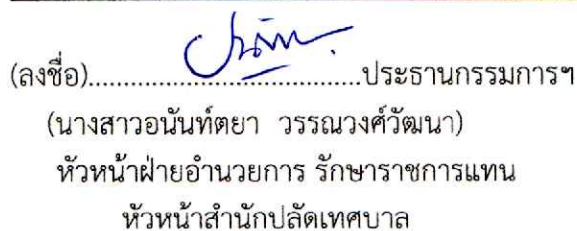 (ลงชื่อ)........................................ประธานกรรมการฯ
(นางสาวอนันท์ตยา วรรณวงศ์วัฒนา)
หัวหน้าฝ่ายอำนวยการ รักษาราชการแทน
หัวหน้าสำนักปลัดเทศบาล